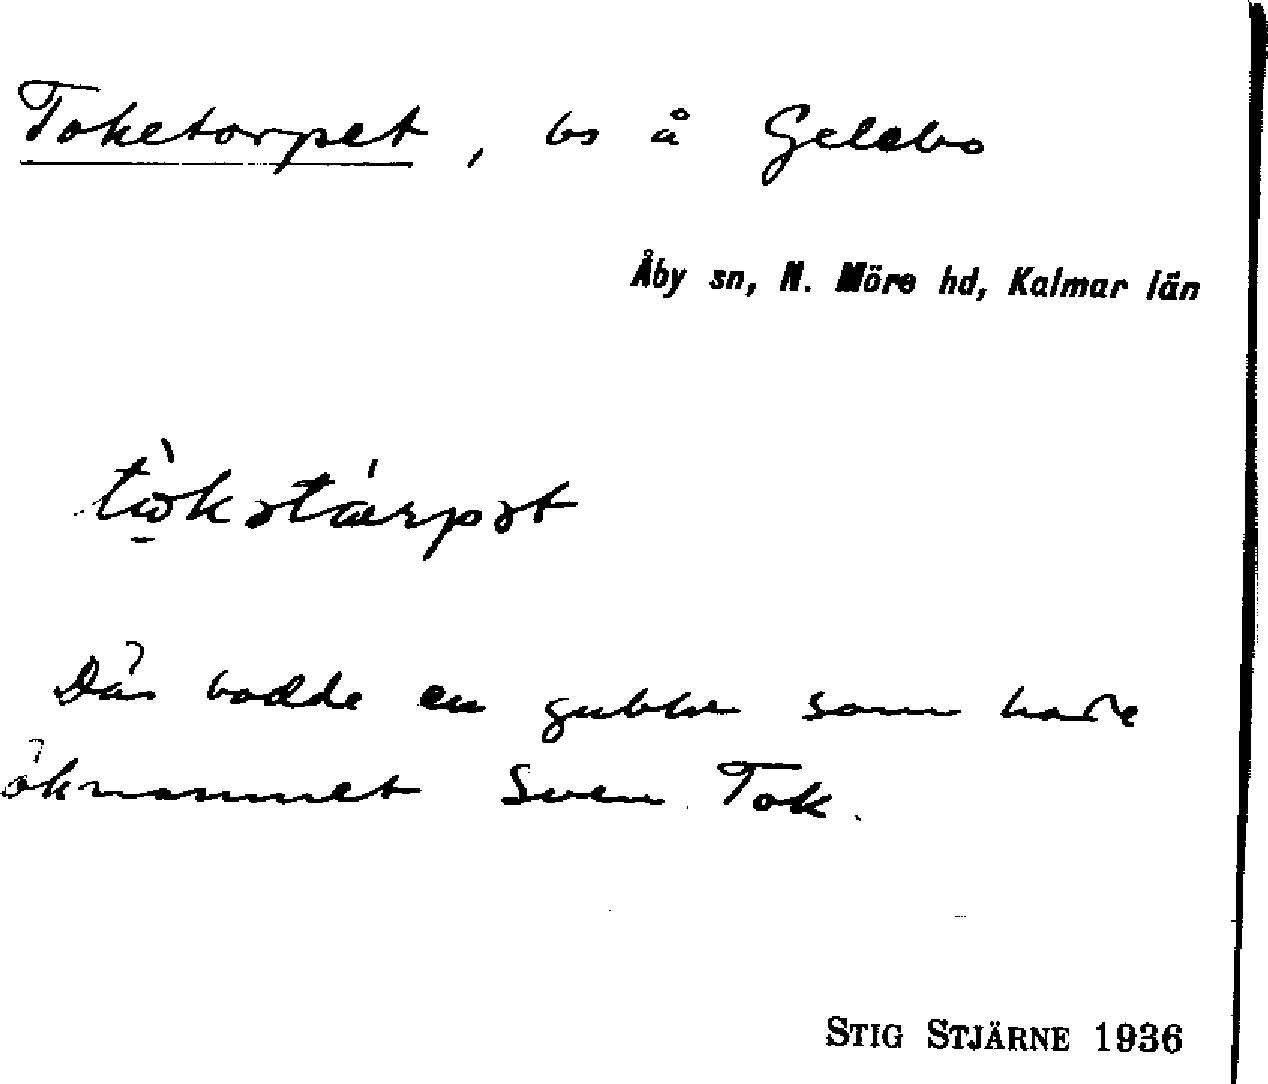 Toketorpet, bs å Gelebo
Åby sn, N. Möre hd, Kalmar län
tòkətárpət
Där bodde en gubbe som hade
öknamnet Sven Tok.
STIG STJÄRNE 1936